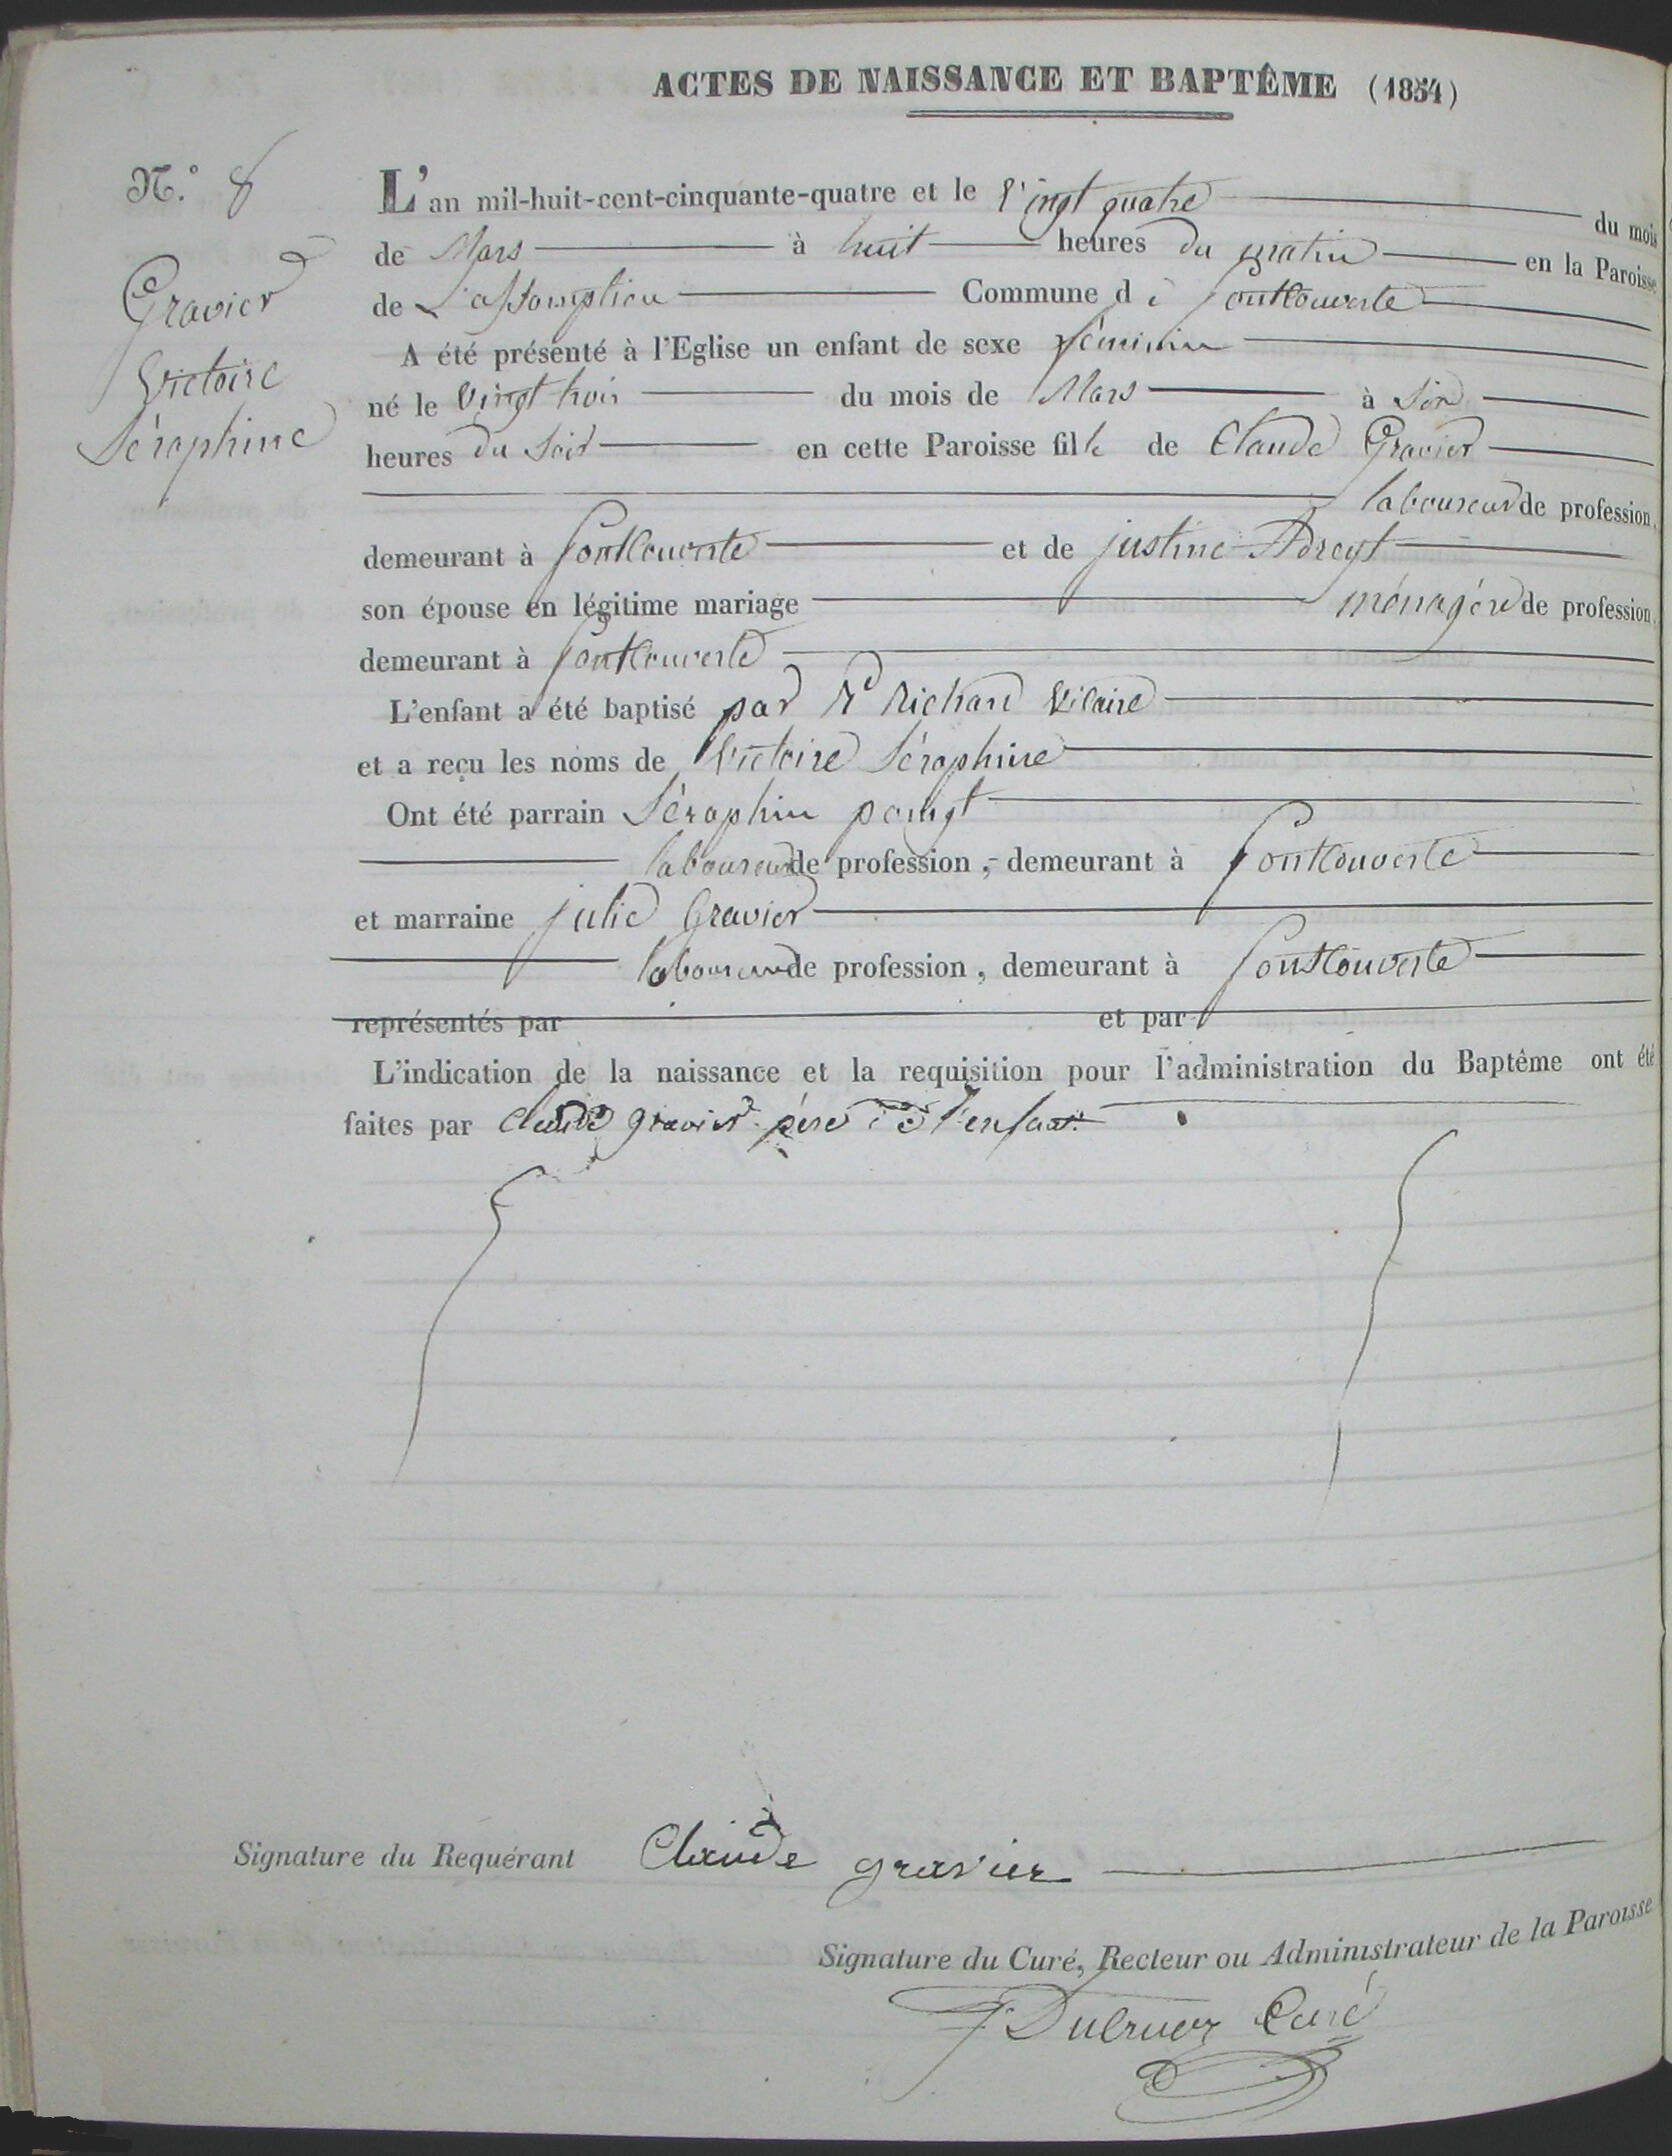 ACTES DE NAISSANCE ET BAPTÊME (1854)
N.° 8
Gravier
Victoire
Séraphine
L'an mil-huit-cent-cinquante-quatre et le Vingt quatre du mois
de Mars à huit heures du matin en la Paroisse
de L'assomption Commune de fontcouverte
A été présenté à l'Eglise un enfant de sexe féminin
né le Vingt trois du mois de Mars à Six
heures du Soir en cette Paroisse fille de Claude Gravier
laboureur de profession,
demeurant à fontcouverte et de justine
son épouse en légitime mariage ménagère de profession,
demeurant à fontcouverte
L'enfant a été baptisé par Rd Richard Vicaire
et a reçu les noms de Victoire Séraphine
Ont été parrain Séraphin
laboureur de profession, demeurant à fontcouverte
et marraine julie Gravier
de profession, demeurant à fontcouverte
représentés par et par
L'indication de la naissance et la requisition pour l'administration du Baptême ont été
faites par claude gravier père de l'enfant.
Signature du Requérant Claude gravier
Signature du Curé, Recteur ou Administrateur de la Paroisse
Curé